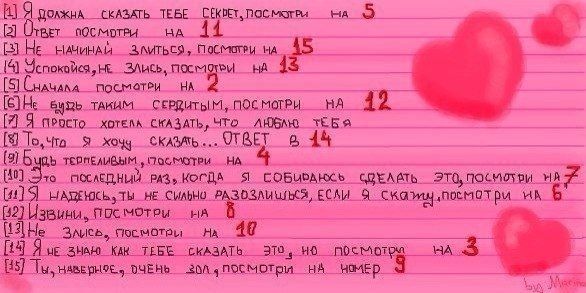 [1] Я ДОЛЖНА СКАЗАТЬ ТЕБЕ СЕКРЕТ, ПОСМОТРИ НА 5
[2] ОТВЕТ ПОСМОТРИ НА 11
[3] НЕ НАЧИНАЙ ЗЛИТЬСЯ, ПОСМОТРИ НА 15
[4] УСПОКОЙСЯ, НЕ ЗЛИСЬ, ПОСМОТРИ НА 13
[5] СНАЧАЛА ПОСМОТРИ НА 2
[6] НЕ БУДЬ ТАКИМ СЕРДИТЫМ, ПОСМОТРИ НА 12
[7] Я ПРОСТО ХОТЕЛА СКАЗАТЬ, ЧТО ЛЮБЛЮ ТЕБЯ
[8] ТО, ЧТО Я ХОЧУ СКАЗАТЬ... ОТВЕТ В 14
[9] БУДЬ ТЕРПЕЛИВЫМ, ПОСМОТРИ НА 4
[10] ЭТО ПОСЛЕДНИЙ РАЗ, КОГДА Я СОБИРАЮСЬ СДЕЛАТЬ ЭТО, ПОСМОТРИ НА 7
[11] Я НАДЕЮСЬ, ТЫ НЕ СИЛЬНО РАЗОЗЛИШЬСЯ, ЕСЛИ Я СКАЖУ, ПОСМОТРИ НА 6
[12] ИЗВИНИ, ПОСМОТРИ НА 8
[13] НЕ ЗЛИСЬ, ПОСМОТРИ НА 10
[14] Я НЕ ЗНАЮ КАК ТЕБЕ СКАЗАТЬ ЭТО, НО ПОСМОТРИ НА 3
[15] ТЫ, НАВЕРНОЕ, ОЧЕНЬ ЗОЛ, ПОСМОТРИ НА НОМЕР 9
by